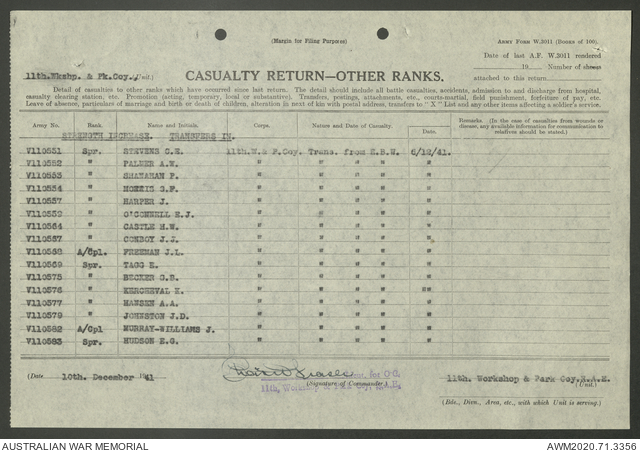 (Margin for Filing Purposes)
ARMY FORM W.3011 (BOOKS OF 100).
Date of last A.F. W.3011 rendered
19 Number of sheets
11th.Wkshp. & Pk.Coy. (Unit.)
CASUALTY RETURN—OTHER RANKS.
attached to this return
Detail of casualties to other ranks which have occurred since last return. The detail should include all battle casualties, accidents, admission to and discharge from hospital,
casualty clearing station, etc. Promotion (acting, temporary, local or substantive). Transfers, postings, attachments, etc., courts-martial, field punishment, forfeiture of pay, etc.
Leave of absence, particulars of marriage and birth or death of children, alteration in next of kin with postal address, transfers to "X" List and any other items affecting a soldier's service.
Army No. Rank. Name and Initials. Corps. Nature and Date of Casualty. Date. Remarks. (In the case of casualties from wounds or
disease, any available information for communication to
relatives should be stated.)
STRENGTH INCREASE. TRANSFERS IN.
V110551 Spr. STEVENS C.E. 11th.W.& P.Coy. Trans. from E.B.W. 6/12/41.
V110552 " PALMER A.W. " " " " "
V110553 " SHANAHAN P. " " " " "
V110554 " G.F. " " " " "
V110557 " HARPER J. " " " " "
" O'CONNELL E.J. " " " " "
V110564 " CASTLE H.W. " " " " "
" CONBOY J.J. " " " " "
V110568 A/Cpl. FREEMAN J.L. " " " " "
V110569 Spr. TAGG E. " " " " "
V110575 " BECKER C.B. " " " " "
V110576 " KERCHEVAL K. " " " " "
V110577 " HANSEN A.A. " " " " "
V110579 " JOHNSTON J.D. " " " " "
V110582 A/Cpl MURRAY-WILLIAMS J. " " " " "
V110583 Spr. HUDSON E.G. " " " " "
(Date 10th. December 1941
for O.C.
(Signature of Commander.)
11th. Workshop & Park Coy. R.A.E.
11th. Workshop & Park Coy.R.A.E.
(Unit.)
(Bde., Divn., Area, etc., with which Unit is serving.)
AUSTRALIAN WAR MEMORIAL
AWM2020.71.3356